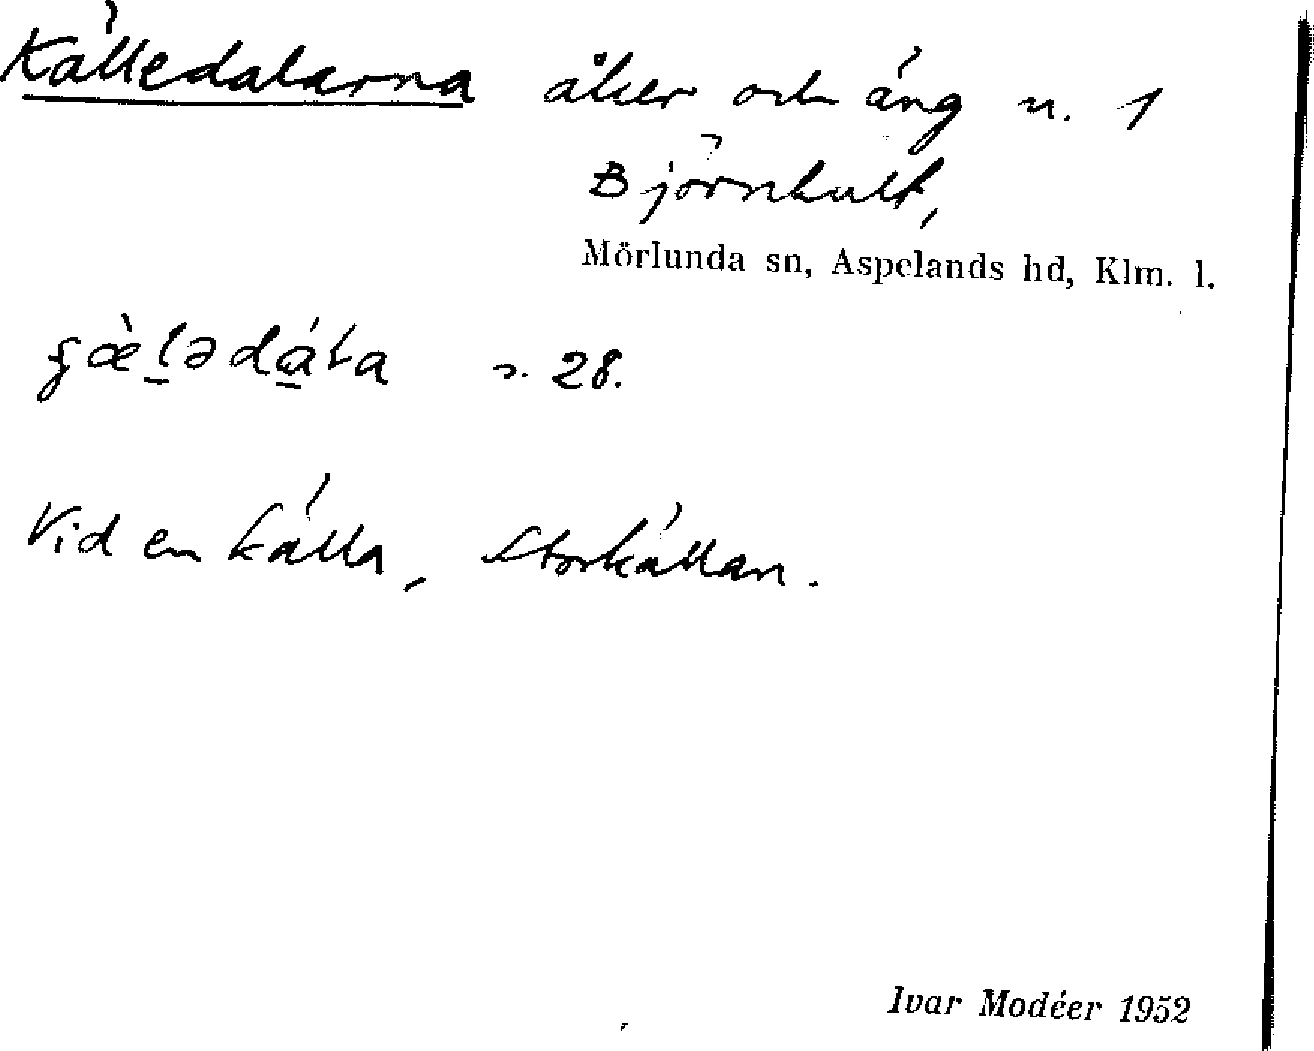 Källedalarna åker och äng n. 1
Björnhult,
Mörlunda sn, Aspelands hd, Klm. l.
s. 28.
Vid en källa, Storkällan.
Ivar Modéer 1952